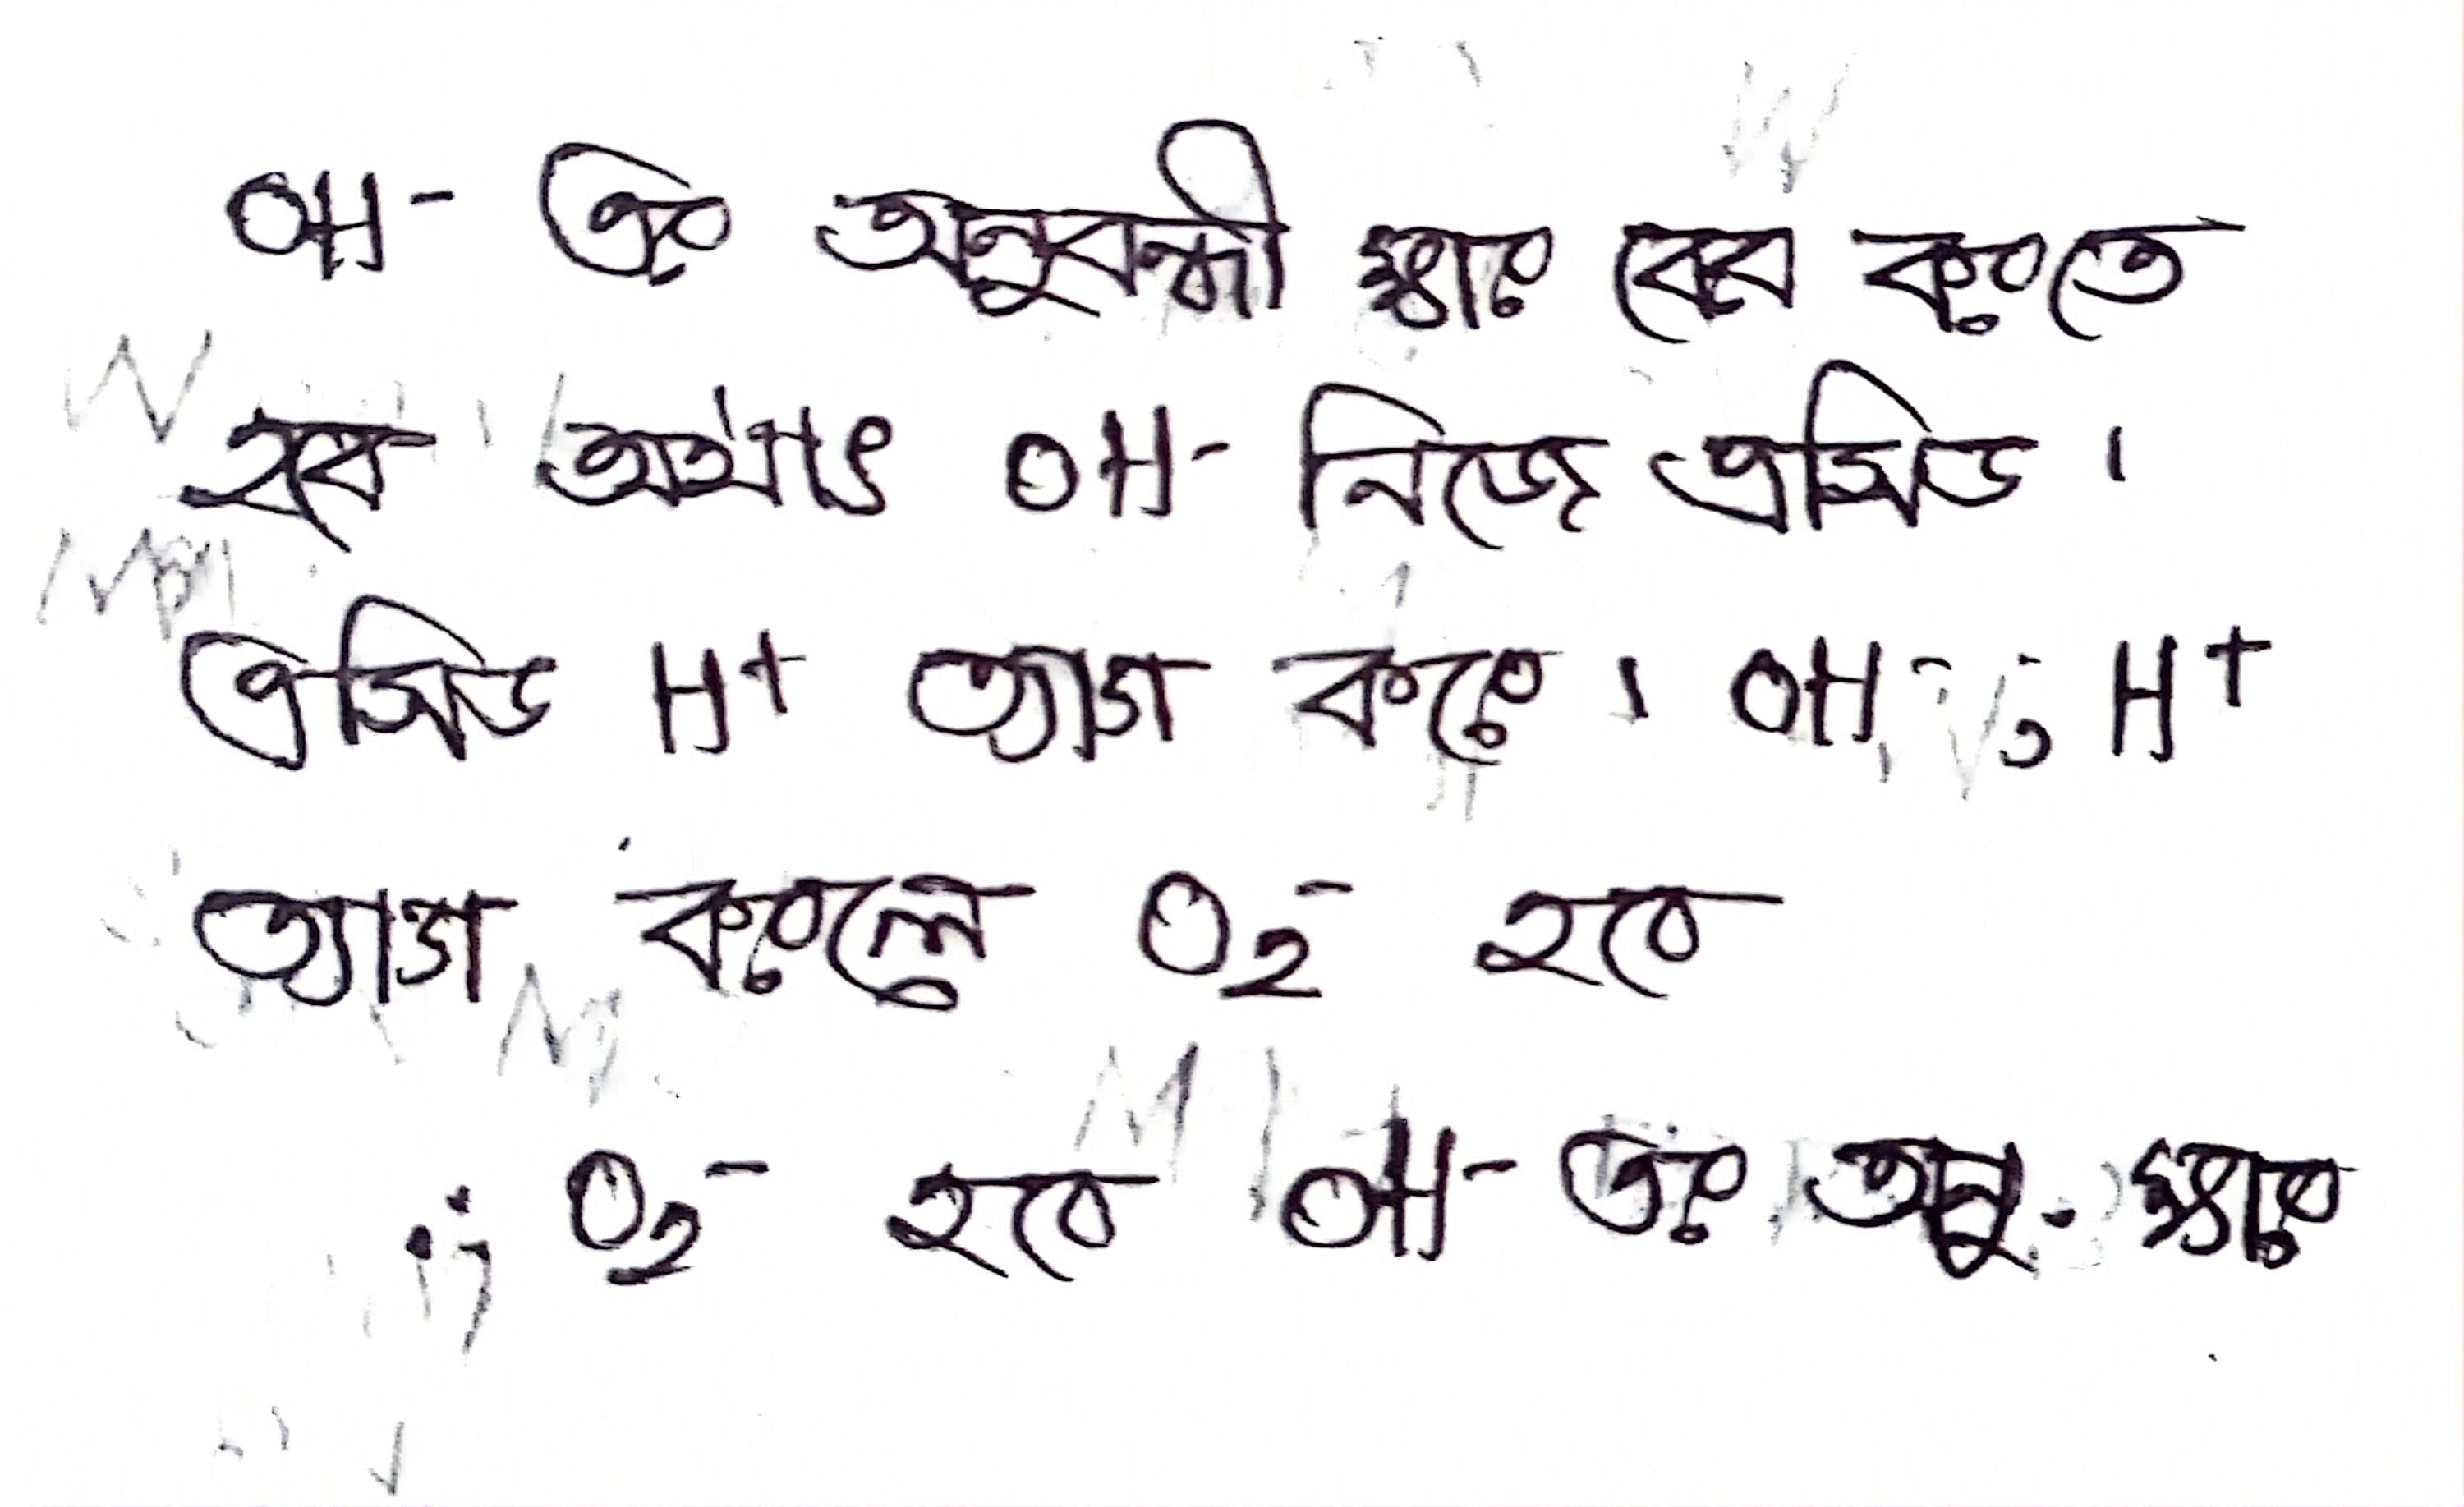 OH⁻ এর অনুবন্ধী ক্ষার বের করতে
হবে অর্থাৎ OH⁻ নিজে এসিড ।
এসিড H⁺ ত্যাগ করে । OH⁻, H⁺
ত্যাগ করলে O₂⁻ হবে
∴ O₂⁻ হবে OH⁻ এর অনু. ক্ষার